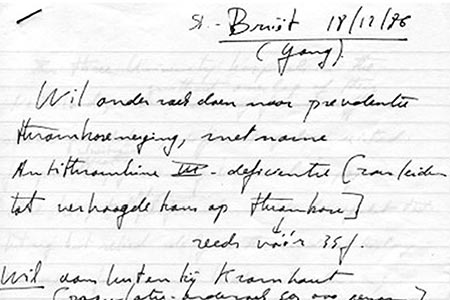 St.-Bruist 18/12/86
(Gang).
Wil onderzoek doen naar prevalentie
thromboseneiging, met name
Antithrombine III-deficientie (van leiden
tot verhoogde kans op thrombose]
reeds vóór 35j.
Wil aansluiten bij Kromhout